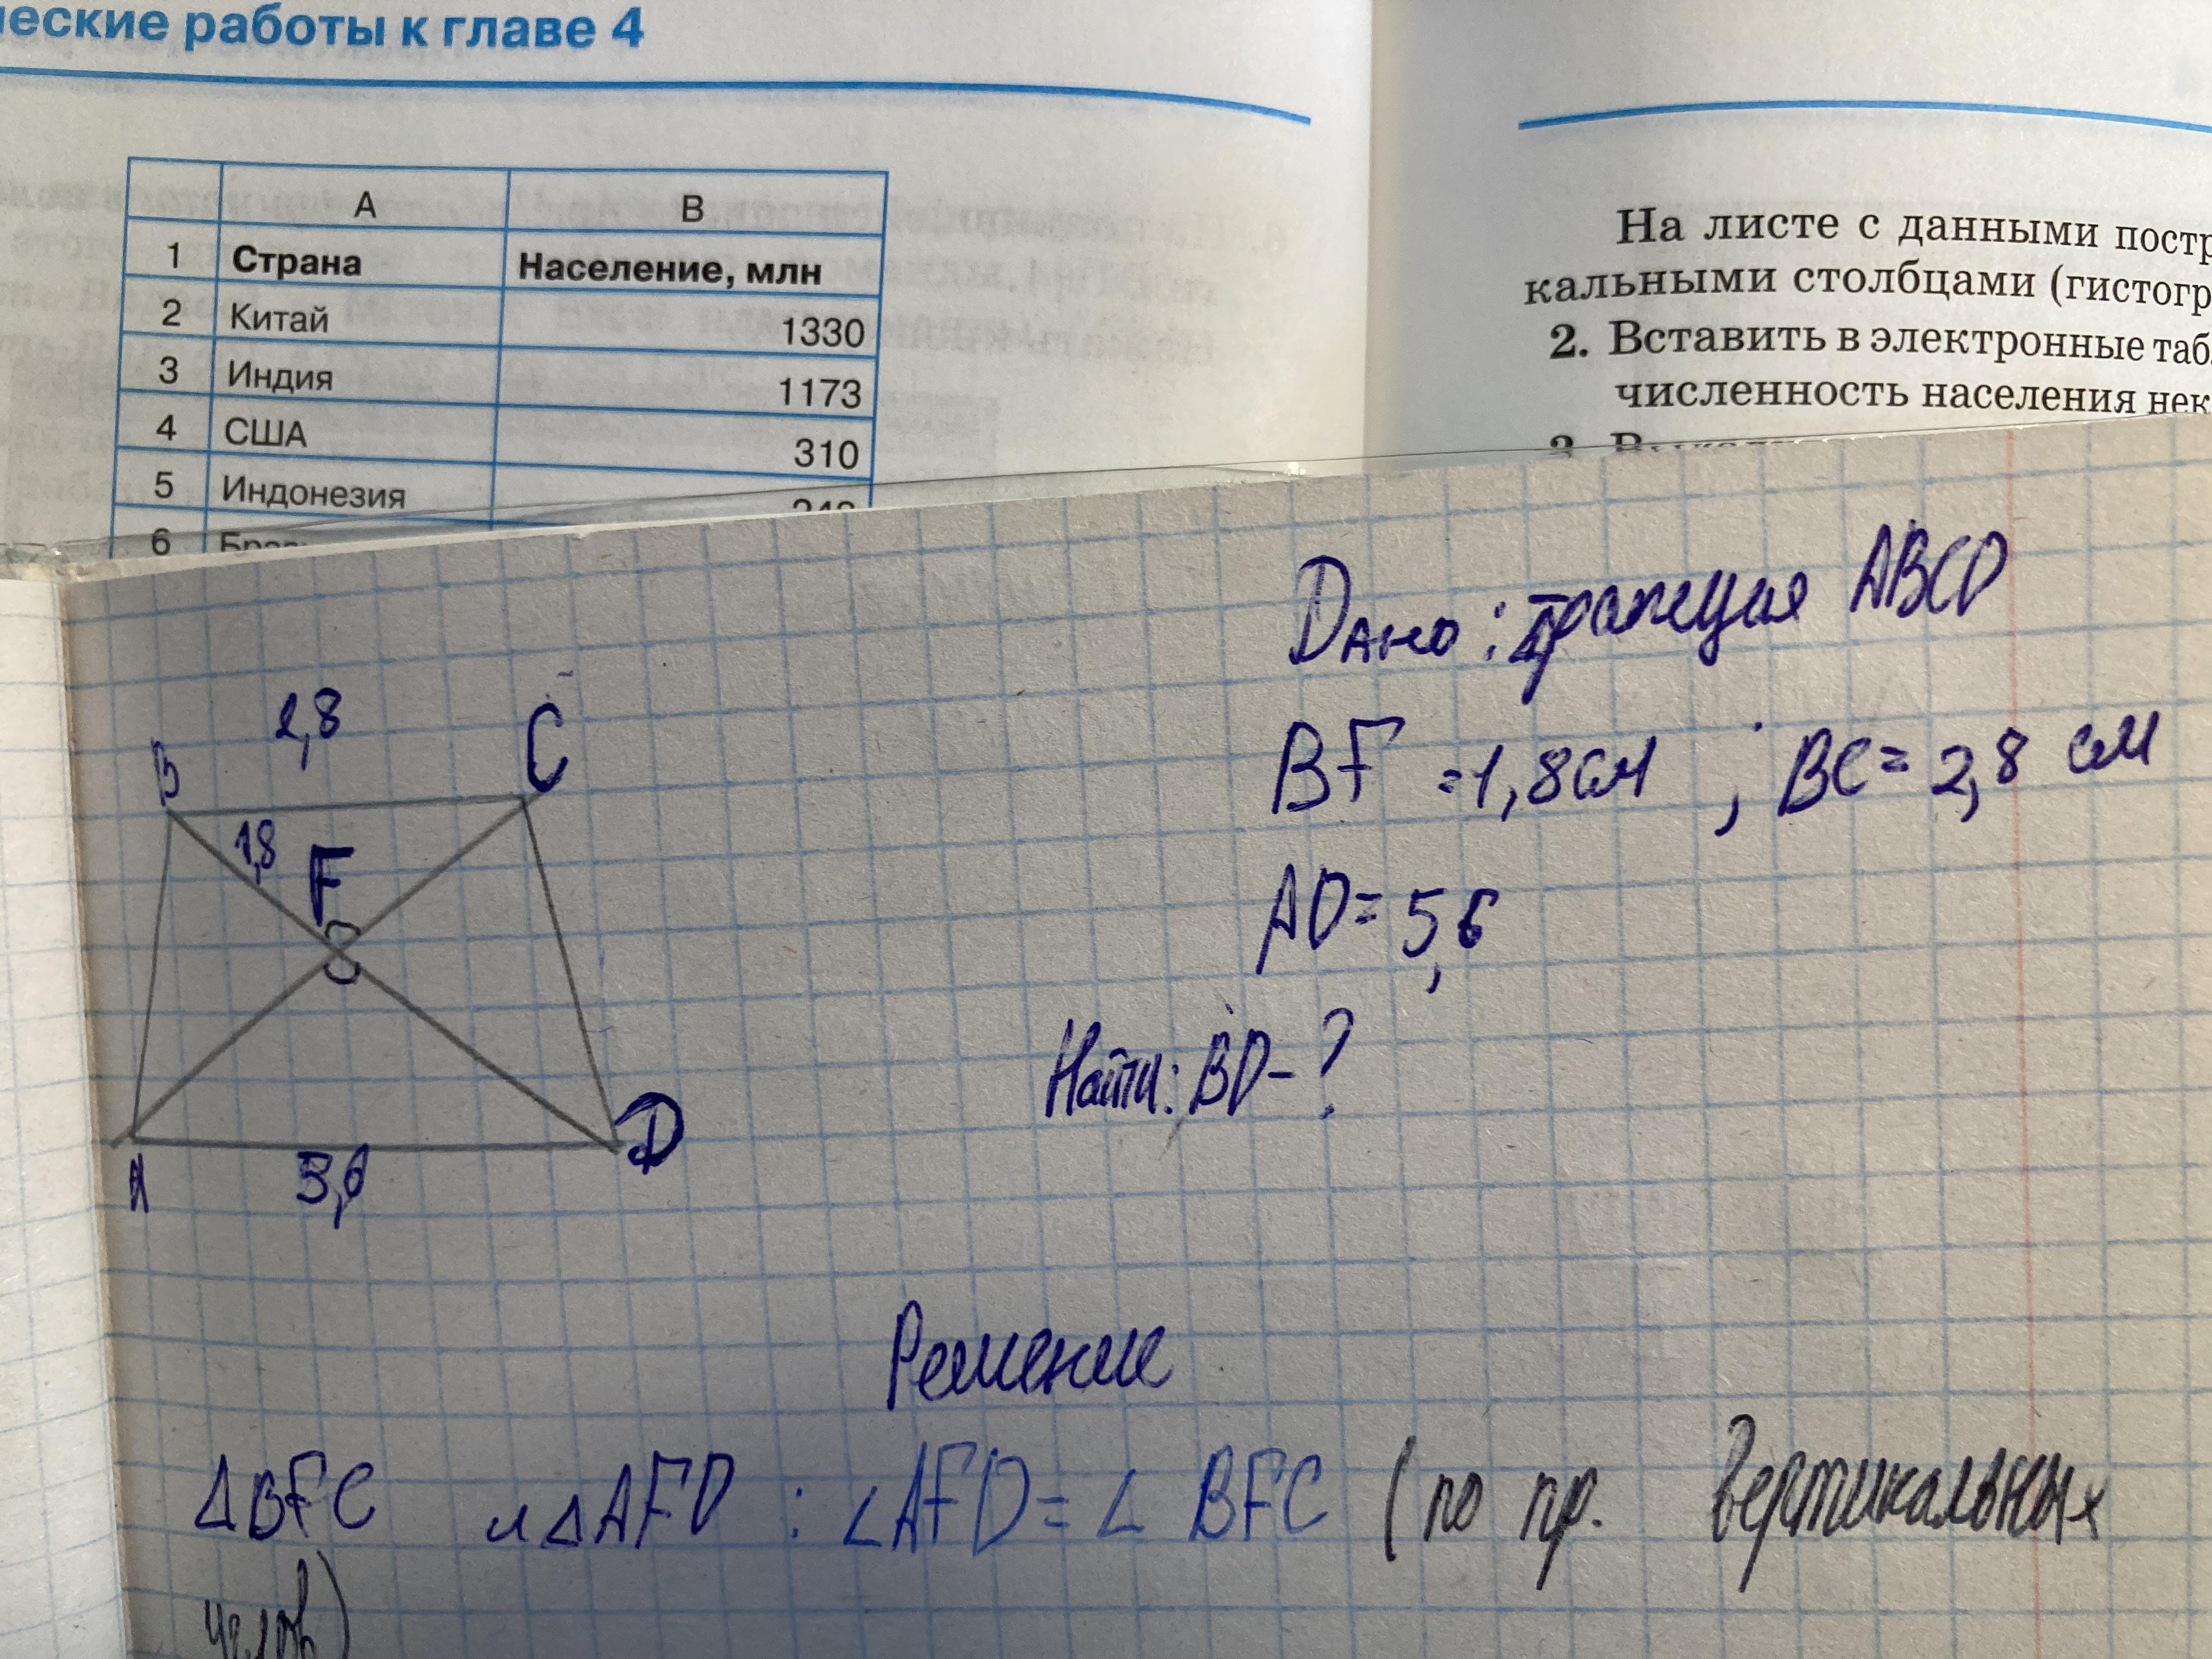 ческие работы к главе 4
A B
1 Страна Население, млн
2 Китай 1330
3 Индия 1173
4 США 310
5 Индонезия
6
На листе с данными постр
кальными столбцами (гистогр
2. Вставить в электронные таб
численность населения нек
Дано: трапеция ABCD
BF =1,8см ; BC= 2,8 см
AD= 5,6
Найти: BD-?
2,8
B C
1,8
F
A D
5,6
Решение
ΔBFC и ΔAFD : ∠AFD= ∠ BFC (по пр. вертикальных
углов)